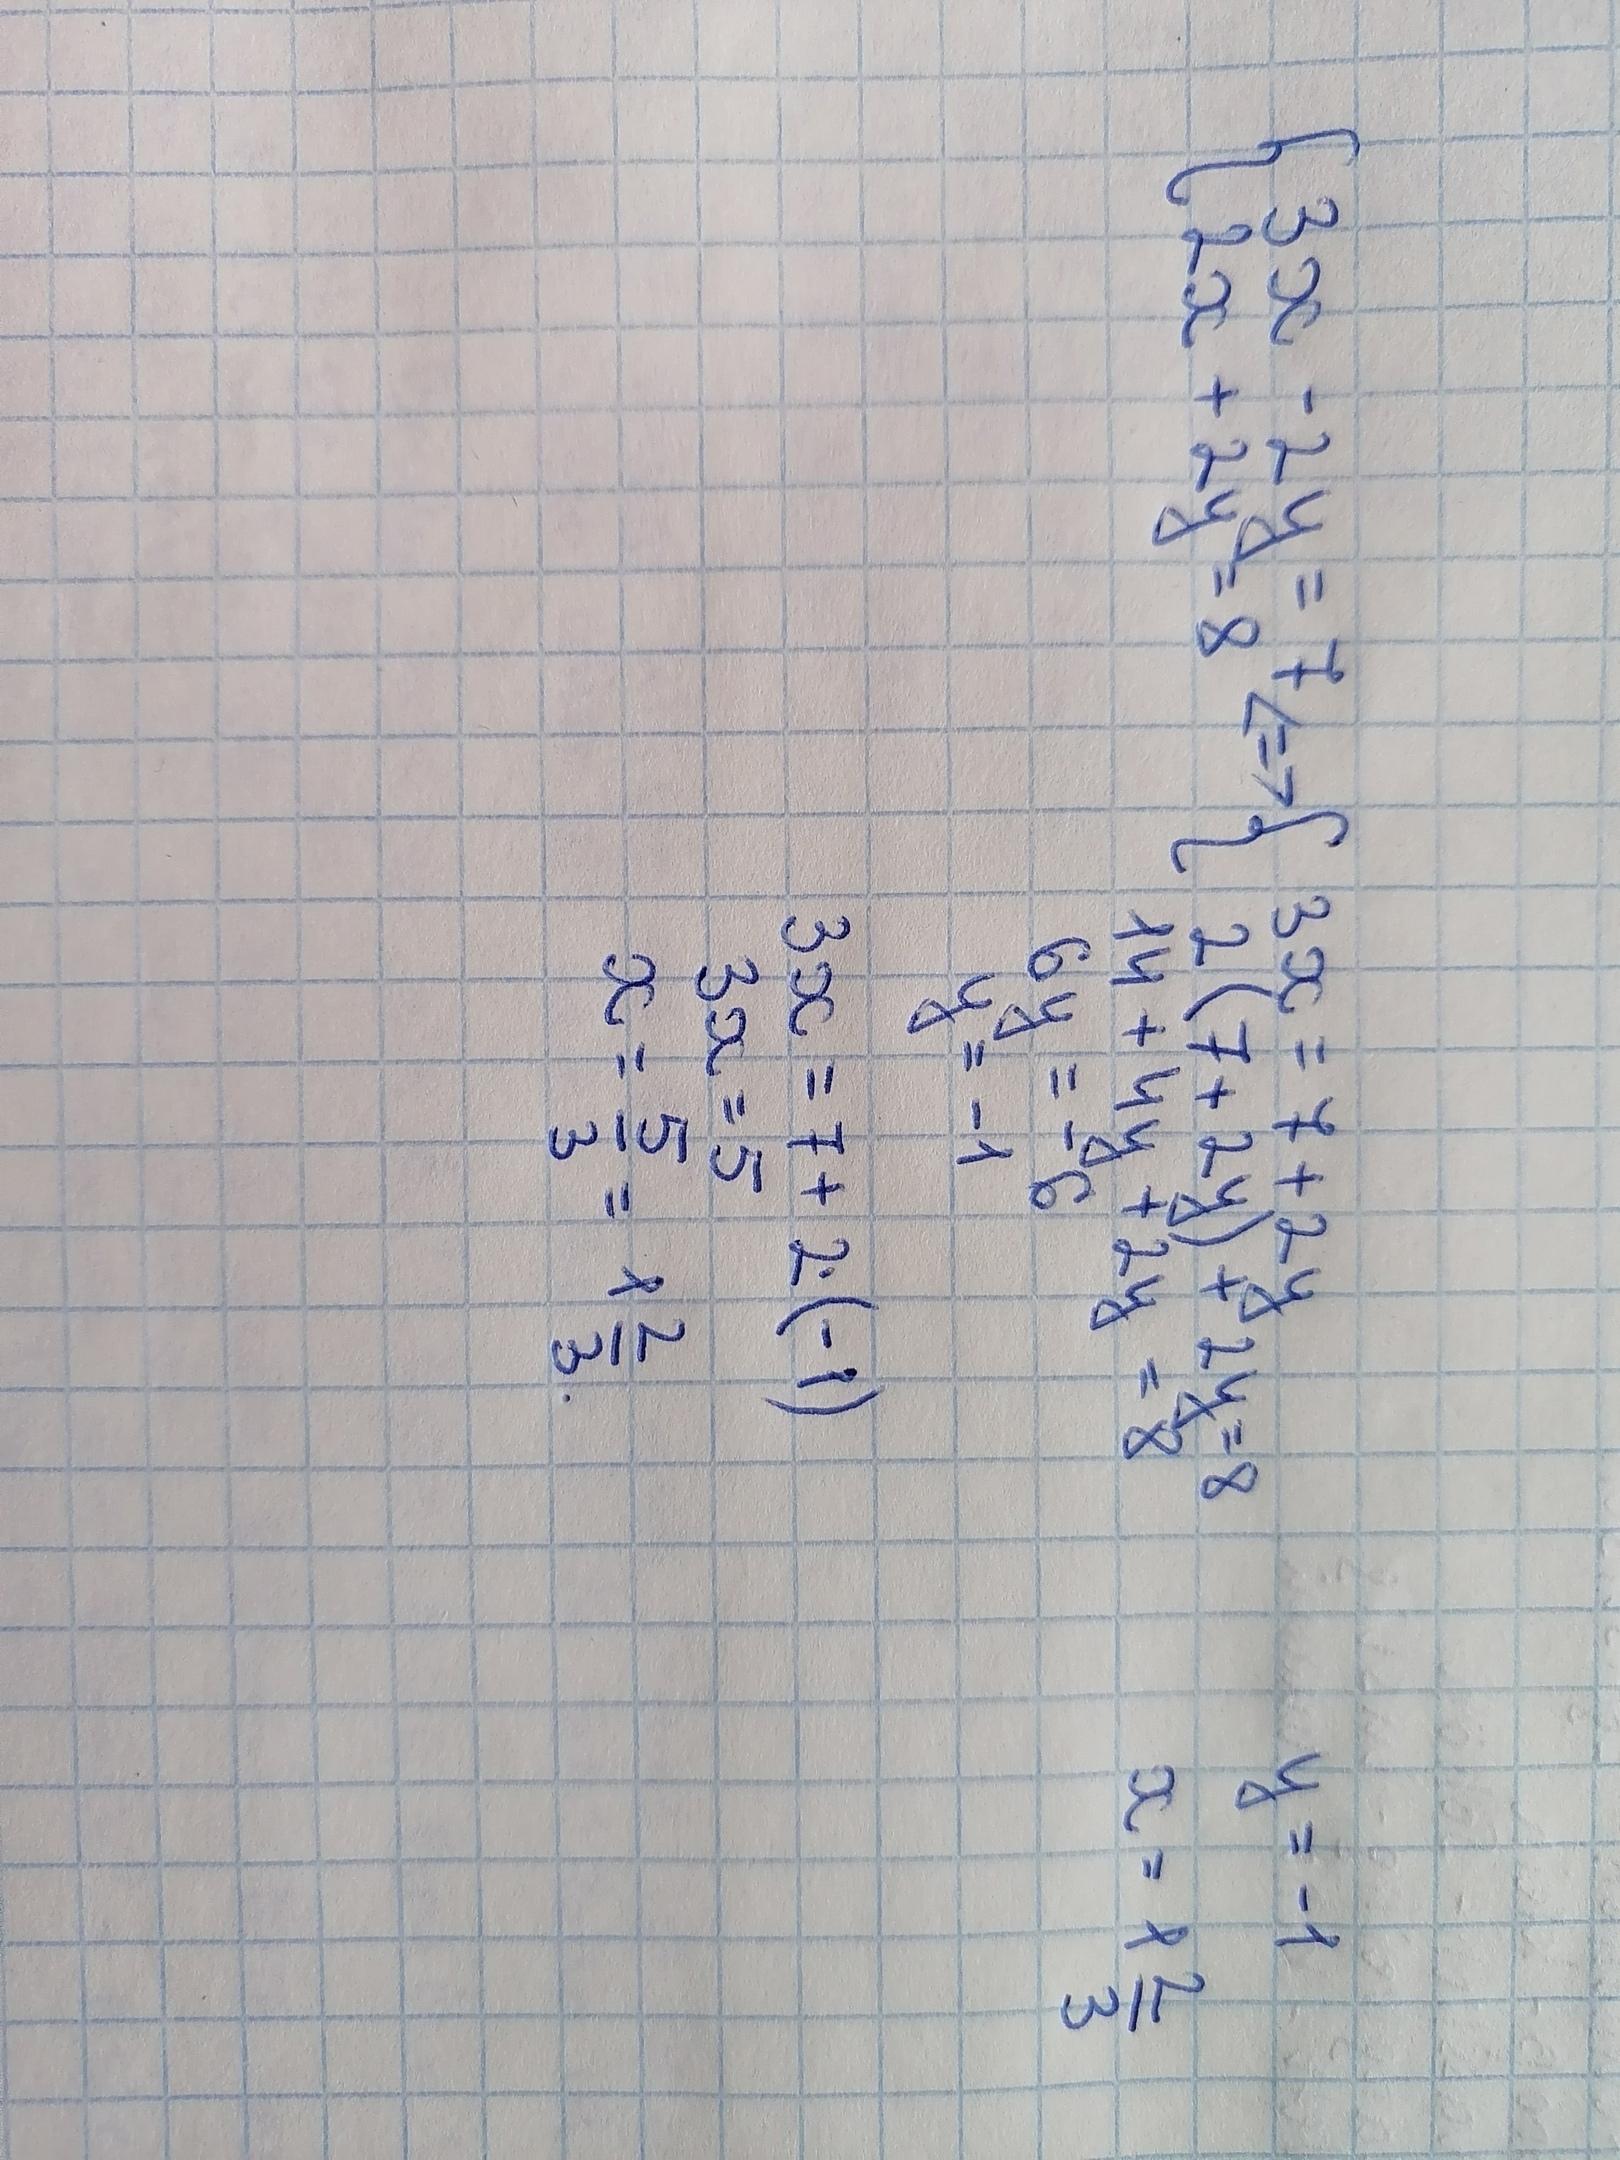 {3x - 2y = 7 <=> {3x = 7 + 2y
2x + 2y = 8 2(7 + 2y) + 2y = 8
14 + 4y + 2y = 8
6y = -6
y = -1
3x = 7 + 2·(-1)
3x = 5
x = 5/3 = 1 2/3.
y = -1
x = 1 2/3